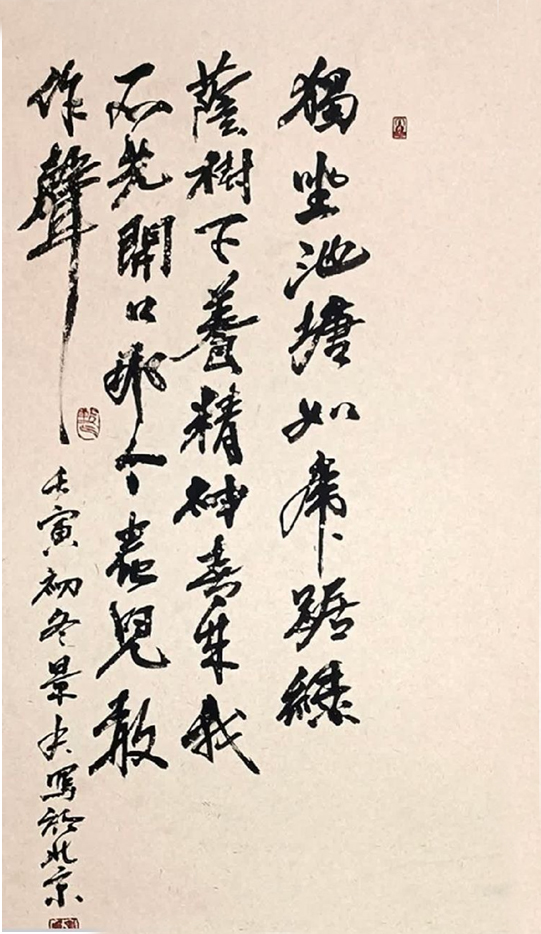 獨坐池塘如虎踞綠
蔭樹下養精神春來我
不先開口那个蟲兒敢
作聲
壬寅初冬景寫於北京